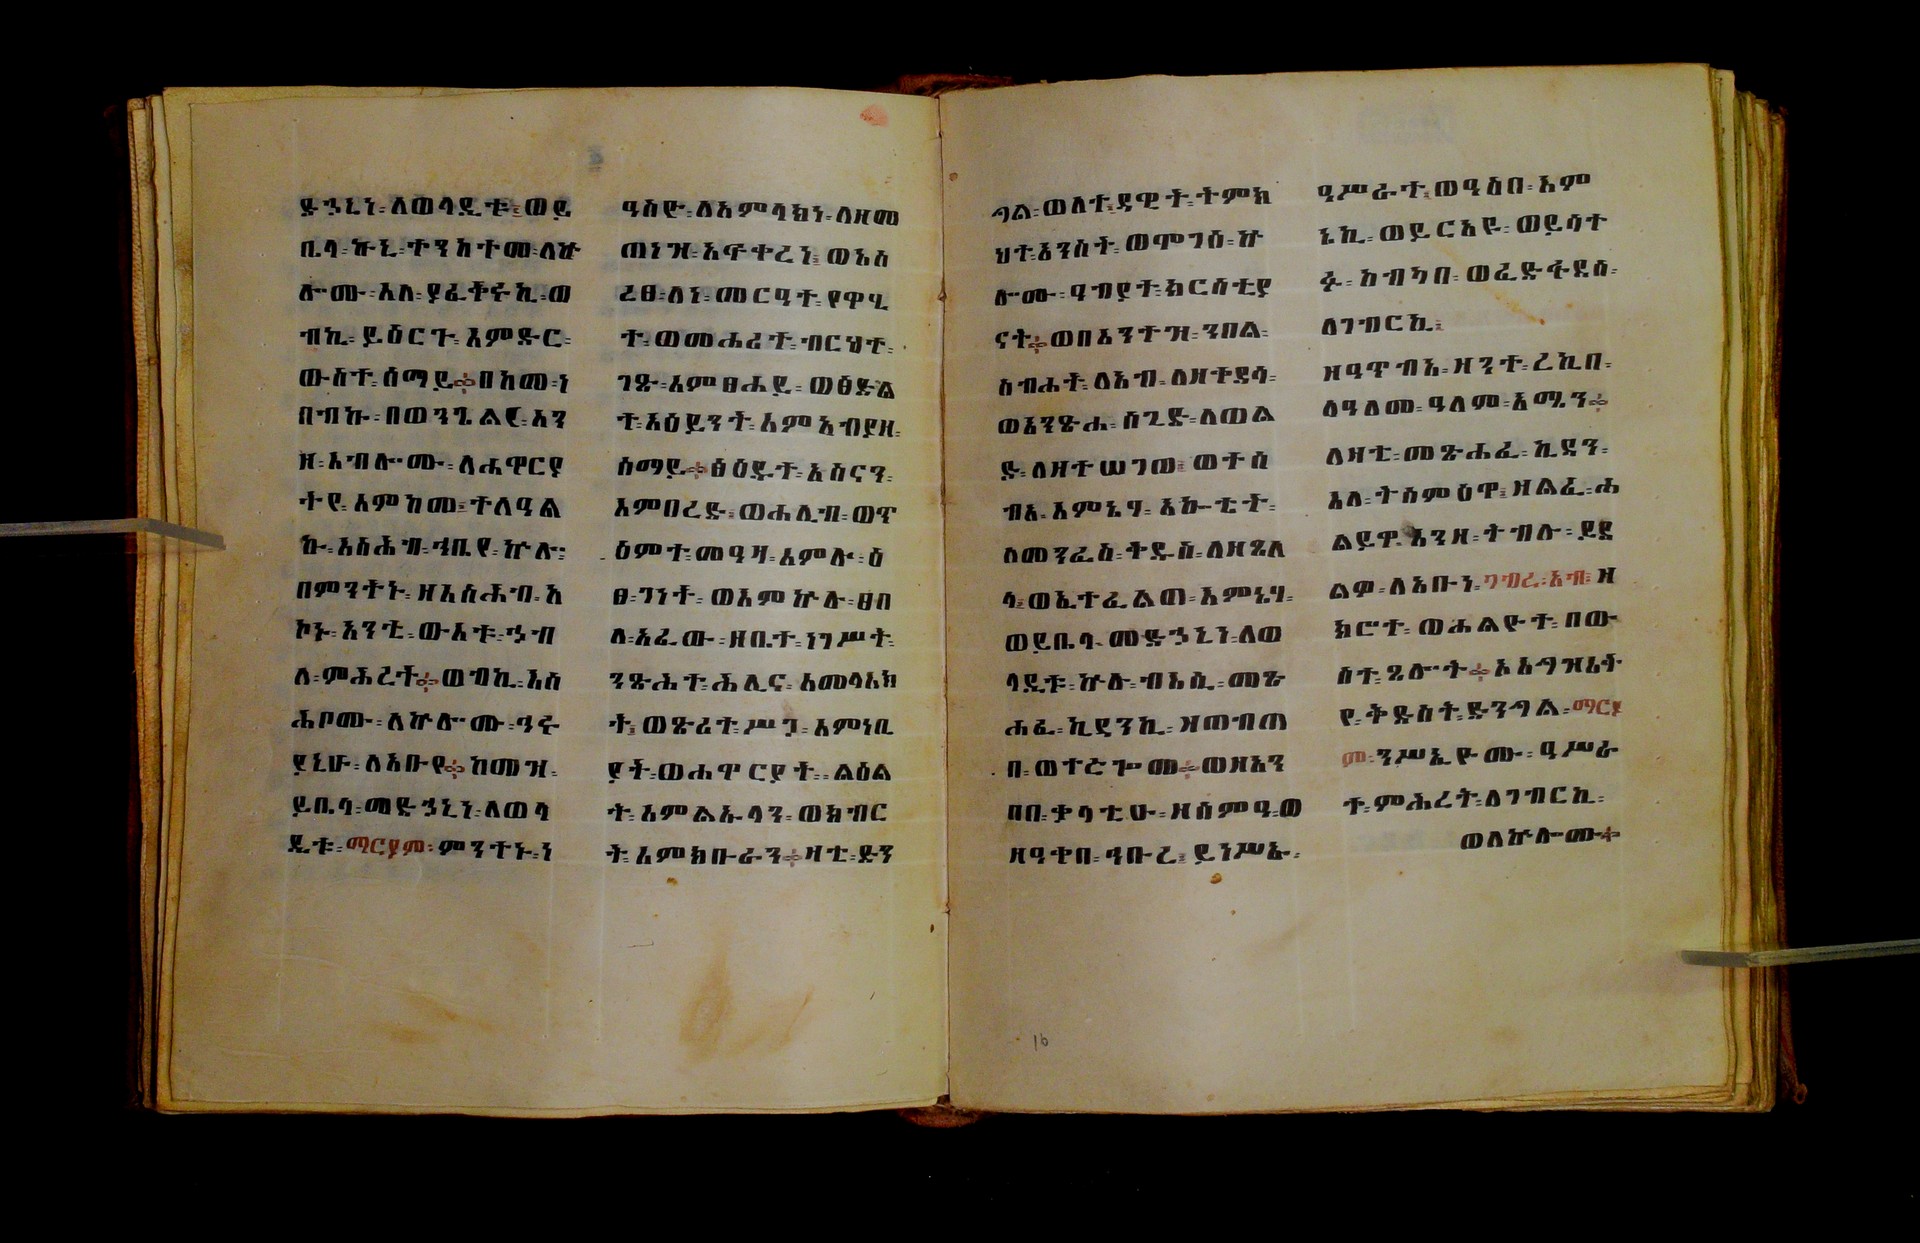 ድኃኒነ፡ ለወላዲቱ፤ ወይ
ቤላ፡ ኵኒ፡ ተንከተመ፡ ለኵ
ሎሙ፡ እለ፡ ያፈቅሩኪ፡ ወ
ብኪ፡ ይዕርጉ፡ እምድር፡
ውስተ፡ ሰማይ፨ በከመ፡ ነ
በብኩ፡ በወንጌልየ፡ እን
ዘ፡ እብሎሙ፡ ለሐዋርያ
ትየ፡ እምከመ፡ ተለዓል
ኩ፡ እስሕብ፡ ኀቤየ፡ ኵሎ፡
በምንትኑ፡ ዘእስሕብ፡ አ
ኮኑ፡ አንቲ፡ ውእቱ፡ ኃብ
ለ፡ ምሕረት፨ ወብኪ፡ እስ
ሕቦሙ፡ ለኵሎሙ፡ ኅሩ
ያኒሁ፡ ለአቡየ፨ ከመዝ፡
ይቤላ፡ መድኃኒነ፡ ለወላ
ዲቱ፡ ማርያም፡ ምንተኑ፡ ነ
ዓስዮ፡ ለአምላክነ፡ ለዘመ
ጠነዝ፡ አፍቀረነ፤ ወአስ
ረፀ፡ ለነ፡ መርዓተ፡ የዋሂ
ተ፡ ወመሐረተ፡ ብርህተ፡
ገጽ፡ እምፀሐይ፡ ወፅድል
ት፡ አዕይንት፡ እምአብያዘ፡
ሰማይ፨ ፅዕዱት፡ አስናን፡
እምበረድ፤ ወሐሊብ፡ ወጥ
ዕምተ፡ መዓዛ፡ እምሎ፡ ዕ
ፀ፡ ገነት፡ ወእምኵሉ፡ ፀበ
ለ፡ አፈው፡ ዘቤተ፡ ነገሥት፡
ንጽሕት፡ ሕሊና፡ እመላእክ
ት፤ ወጽረተ፡ ሥጋ፡ እምነቢ
ያት፡ ወሐዋርያት፡ ልዕል
ት፡ እምልኡላን፡ ወክብር
ት፡ እምክቡራን፨ ዛቲ፡ ድን
ግል፡ ወለተ፡ ዳዊት፡ ትምክ
ህተ፡ አንስት፡ ወሞገሰ፡ ኵ
ሎሙ፡ ዓብያተ፡ ክርስቲያ
ናት፨ ወበእንተዝ፡ ንበል፡
ስብሐት፡ ለአብ፡ ለዘተደሳ፡
ወእንጽሐ፡ ስጊድ፡ ለወል
ድ፡ ለዘተሠገወ፤ ወተሰ
ብአ፡ እምኔሃ፡ አኰቴት፡
ለመንፈስ፡ ቅዱስ፡ ለዘጸለ
ላ፤ ወኢተፈልጠ፡ እምኔሃ፡
ወይቤላ፡ መድኃኒነ፡ ለወ
ላዲቱ፡ ኵሉ፡ ብእሲ፡ መጽ
ሐፈ፡ ኪዳንኪ፡ ዝጠብጠ
በ፡ ወተርጐመ፨ ወዘአን
በበ፡ ቃላቲሁ፡ ዘሰምዓ፡ ወ
ዘዓቀበ፡ ኀቡረ፤ ይነሥኡ፡
ዓሥራተ፤ ወዓስበ፡ እም
ኔኪ፡ ወይርአዩ፡ ወይሳተ
ፉ፡ ከብካበ፡ ወፈድፋደሰ፡
ለገብርኪ፤
ዘዓጥብአ፡ ዘንተ፡ ረኪበ፡
ዕዓለመ፡ ዓለም፡ አሜን፨
ለዛቲ፡ መጽሐፈ፡ ኪዳን፡
እለ፡ ትሰምዕዋ፡ ዘልፈ፡ ሐ
ልይዋ፡ እንዘ፡ ትብሉ፡ ይደ
ልዎ፡ ለአቡነ፡ ገብረ፡ አብ፡ ዘ
ክሮተ፡ ወሐልዮተ፡ በው
ስተ፡ ጸሎት፨ ኦ እግዝእት
የ፡ ቅድስት፡ ድንግል፡ ማርያ
ም፡ ንሥኢዮሙ፡ ዓሥራ
ተ፡ ምሕረት፡ ለገብርኪ፡
ወለኵሎሙ፨
16